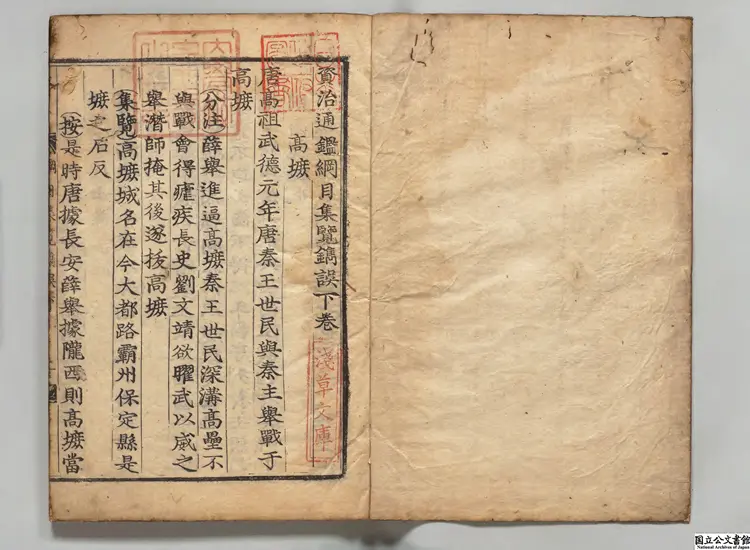 資治通鑑綱目集覽鐫誤下卷
高墌
唐高祖武德元年唐秦王世民與秦主舉戰于
高墌
分注薛舉進逼高墌秦王世民深溝高壘不
與戰會得瘧疾長史劉文靖欲曜武以威之
舉潛師掩其後遂拔高墌
集覽高墌城名在今大都路霸州保定縣是
墌之石反
按是時唐據長安薛舉據隴西則高墌當
淺草文庫
国立公文書館
National Archives of Japan